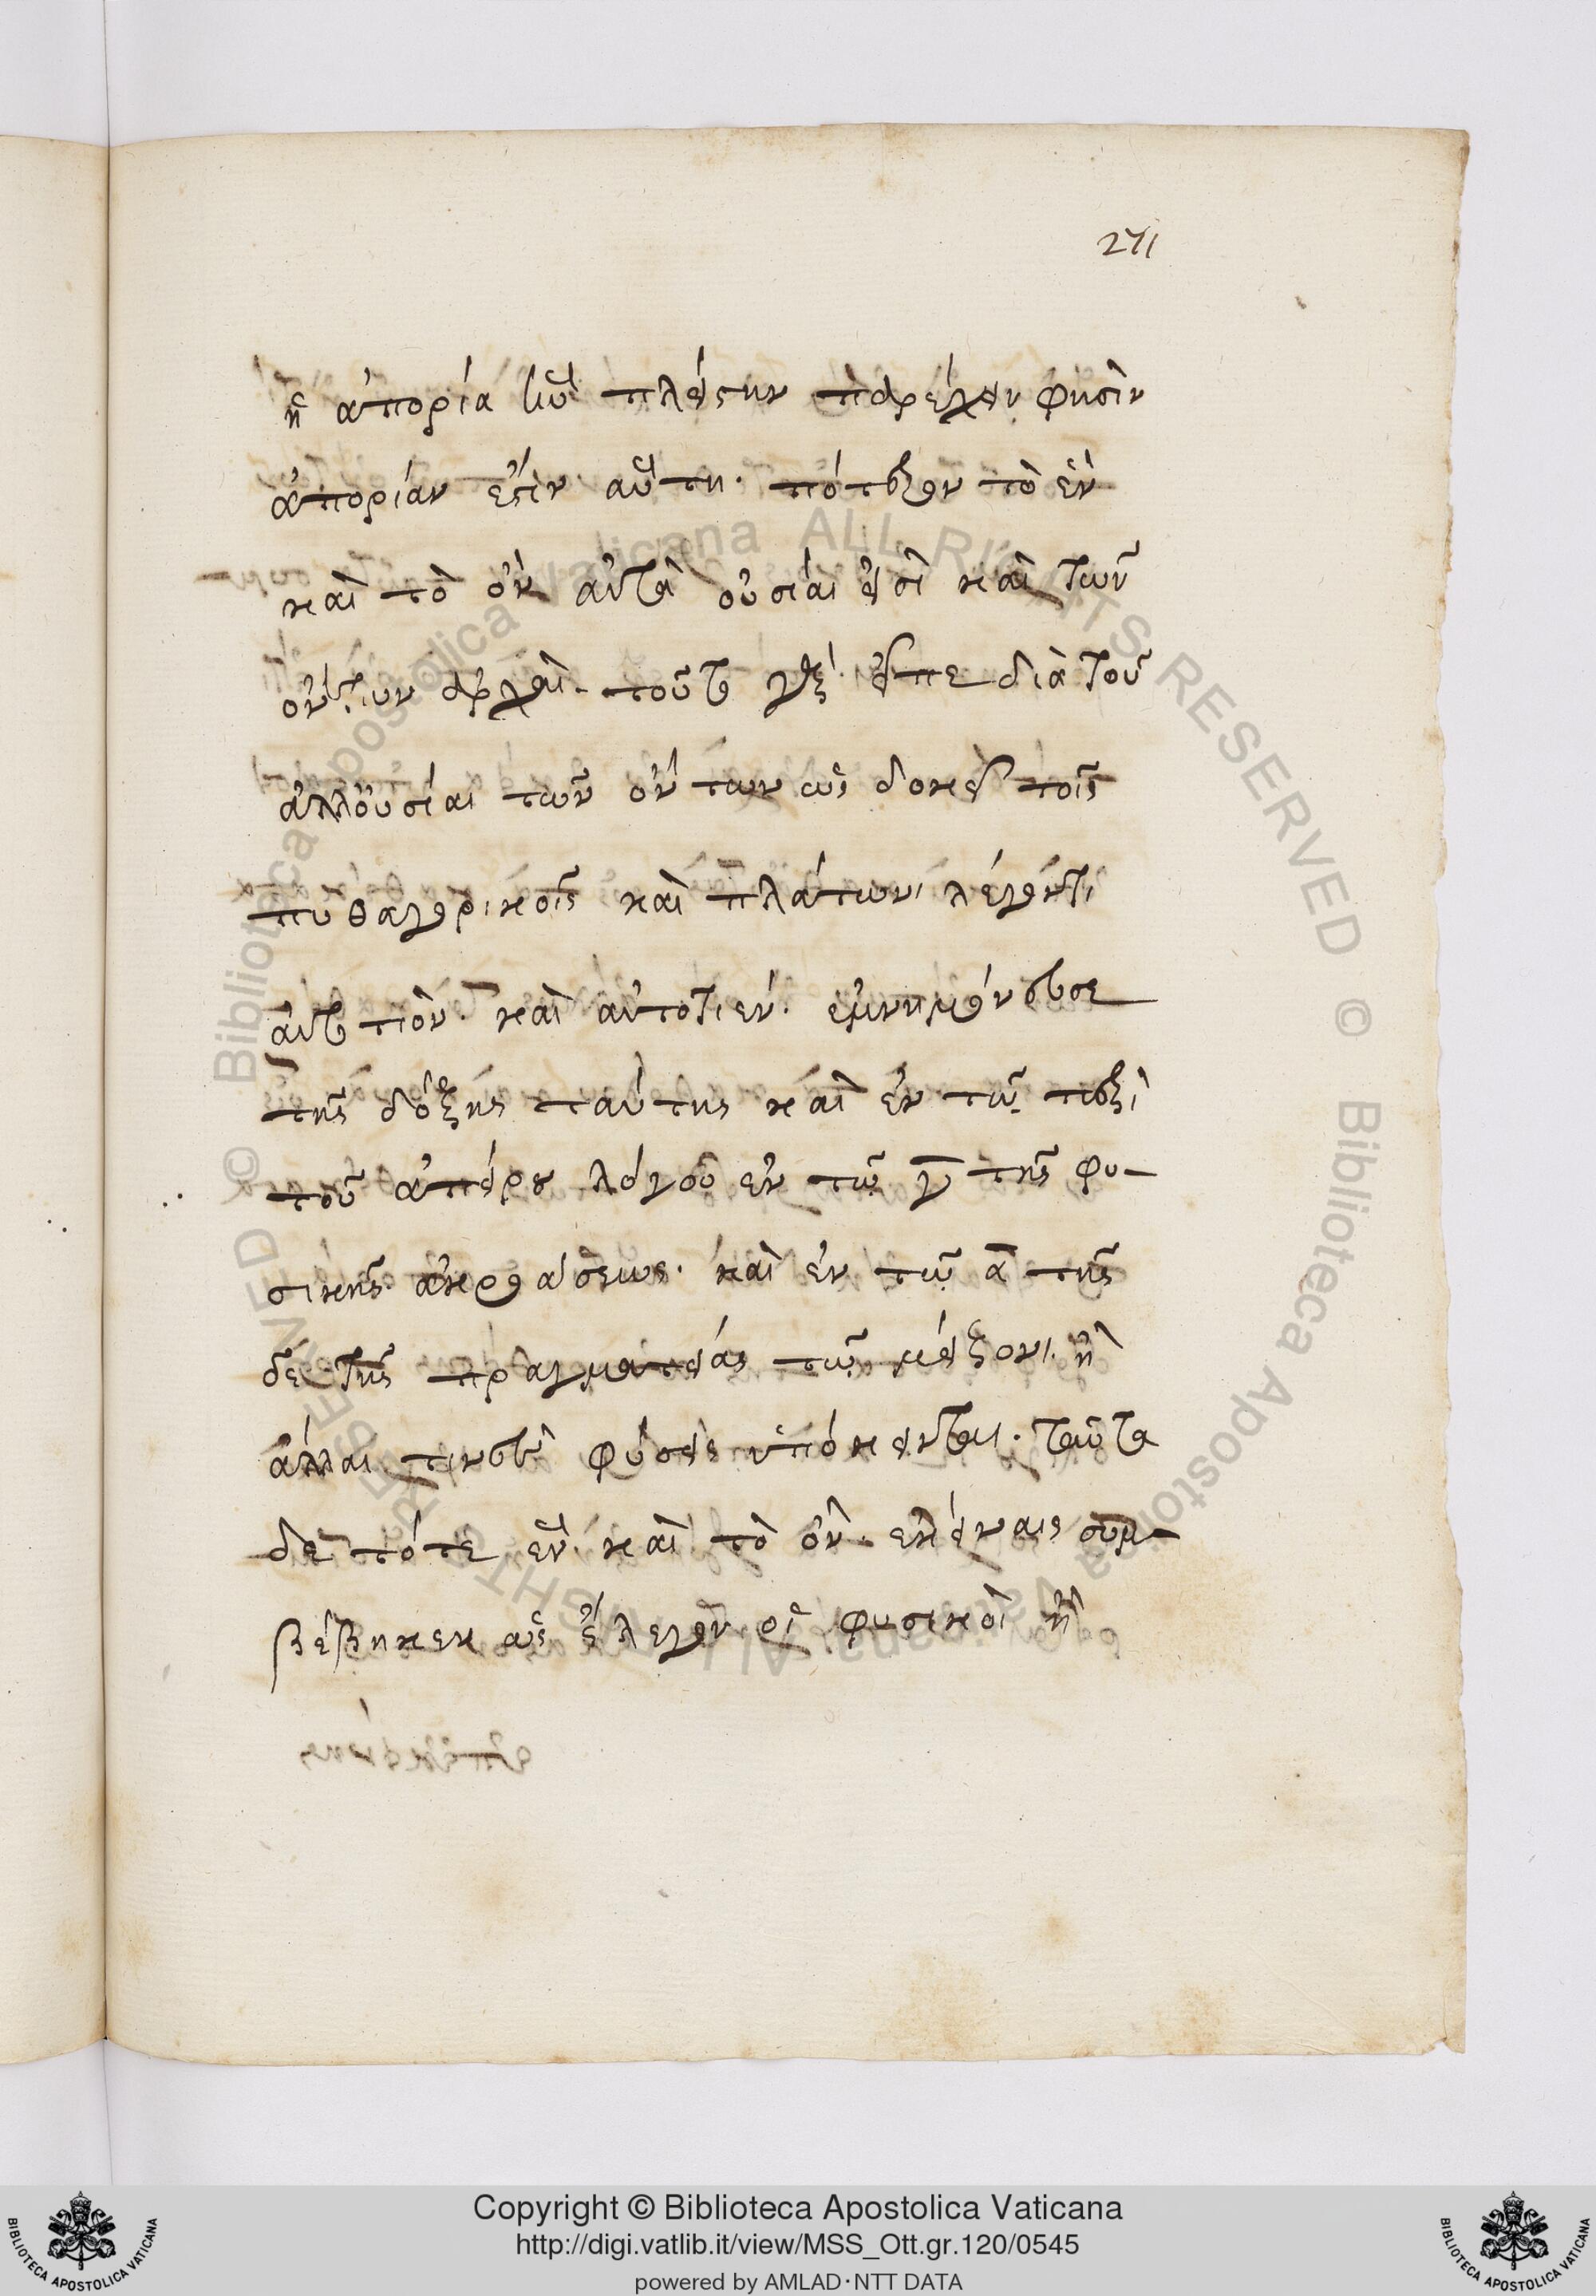 271
ἡ ἀπορία ἣν πλείστην παρέχειν φησὶν
ἀπορίαν ἐστὶν αὕτη· πότερον τὸ ἓν
καὶ τὸ ὂν αὐτὰ οὐσίαι εἰσὶ καὶ τῶν
ὄντων ἀρχαί· τοῦτο γὰρ εἶπε διὰ τοῦ
ἀλλ' οὐσίαι τῶν ὄντων ὡς δοκεῖ τοῖς
πυθαγορικοῖς καὶ πλάτωνι λέγοντι
αὐτό τι ὄν· καὶ αὐτό τι ἕν· ἐμνημόνευσε
τῆς δόξης ταύτης καὶ ἐν τῷ περὶ
τοῦ ἀπείρου λόγου ἐν τῷ γ τῆς φυ-
σικῆς ἀκροάσεως· καὶ ἐν τῷ α τῆς
δε τῆς πραγματείας τῷ μείζονι· ἢ
ἄλλαι τινὲς φύσεις ὑπόκεινται· ταῦτα
δὲ τό τε ἓν καὶ τὸ ὂν ἐκείναις συμ-
βέβηκεν ὡς ἔλεγον οἱ φυσικοὶ ἢ
Copyright © Biblioteca Apostolica Vaticana
http://digi.vatlib.it/view/MSS_Ott.gr.120/0545
powered by AMLAD·NTT DATA
BIBLIOTECA APOSTOLICA VATICANA
BIBLIOTECA APOSTOLICA VATICANA
© Biblioteca Apostolica Vaticana ALL RIGHTS RESERVED
© Biblioteca Apostolica Vaticana ALL RIGHTS RESERVED